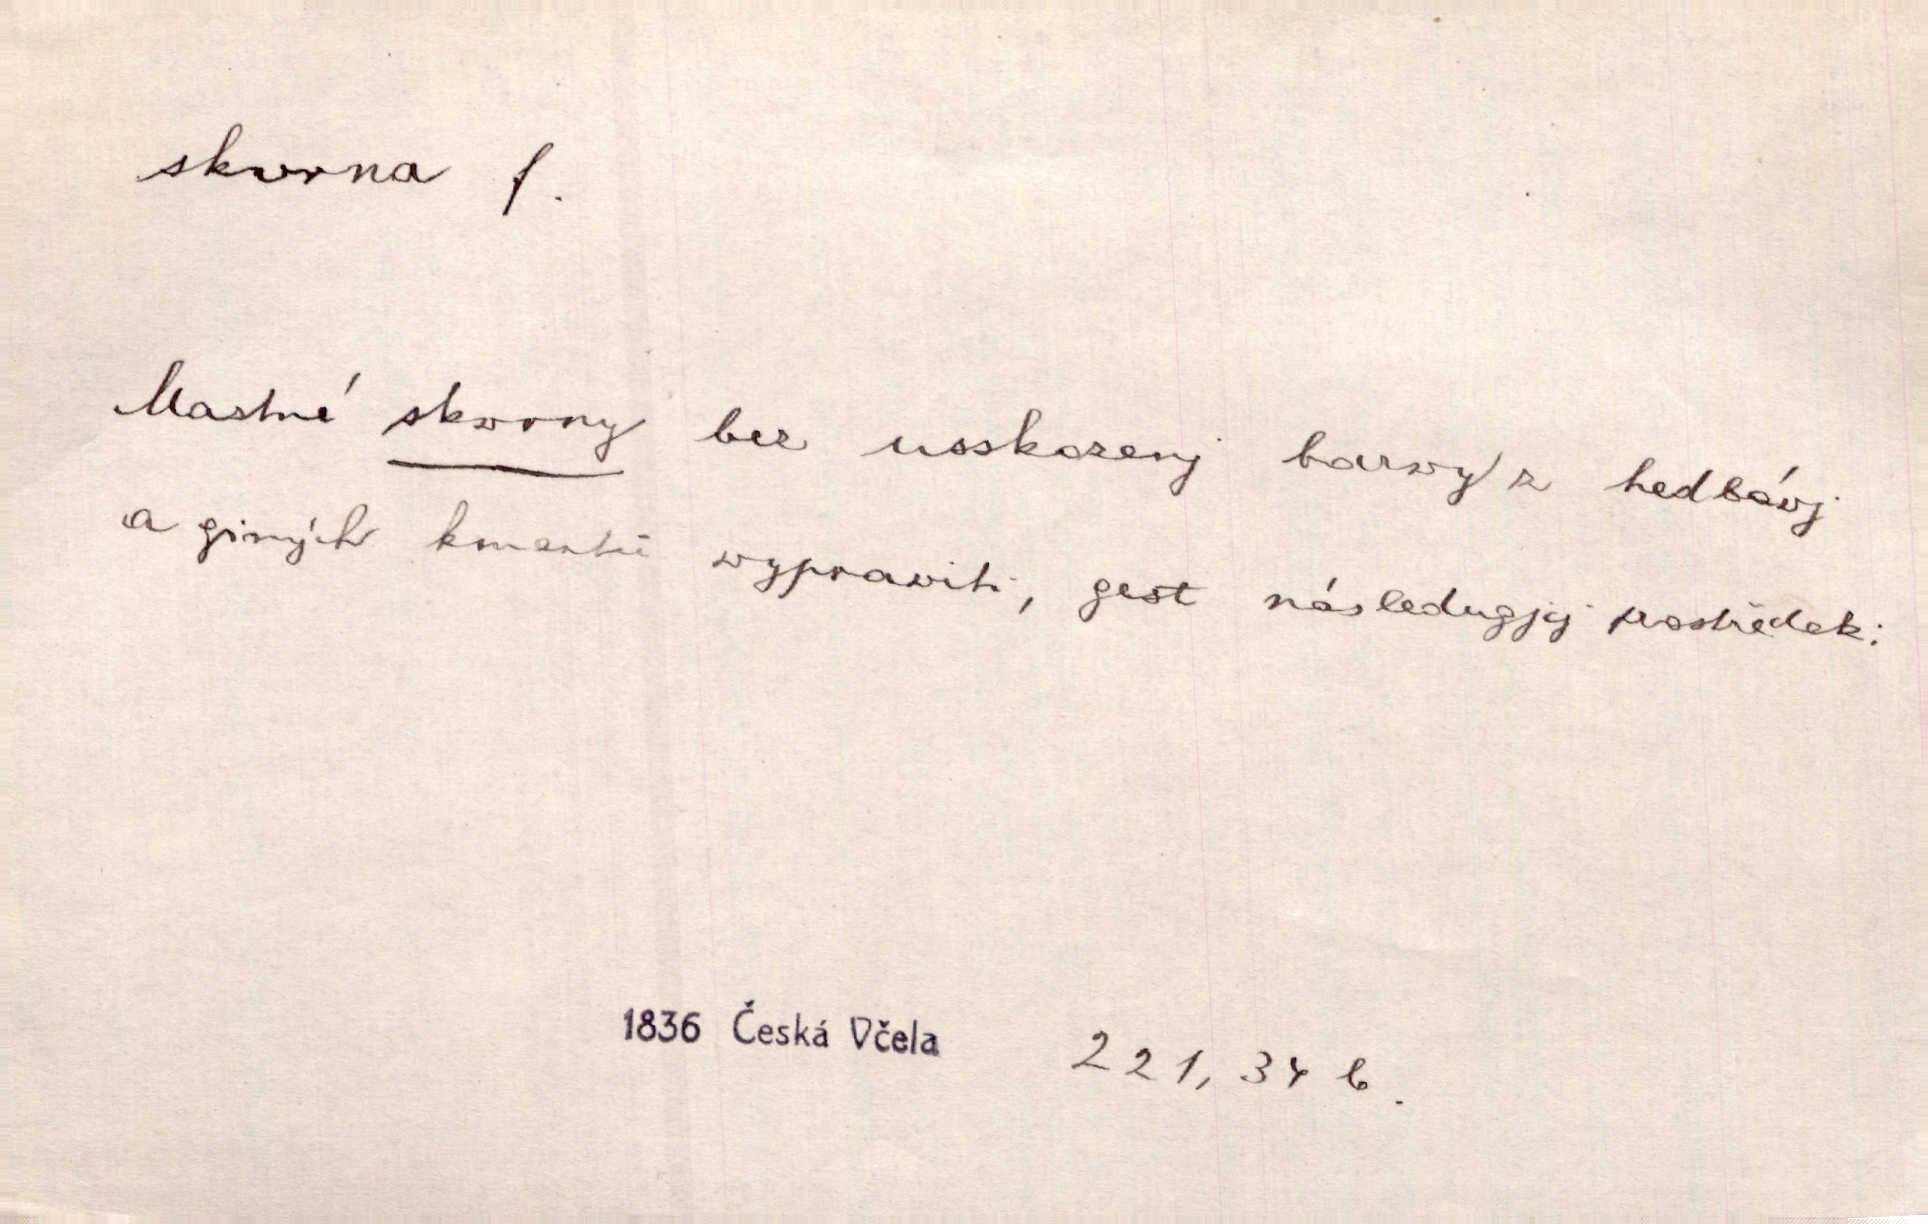 skvrna f.
Mastné skwrny bez usskozenj barwy z hedbáwj
a giných kmentů wyprawiti, gest následugjcj prostředek:
1836 Česká Včela 221, 34 b.